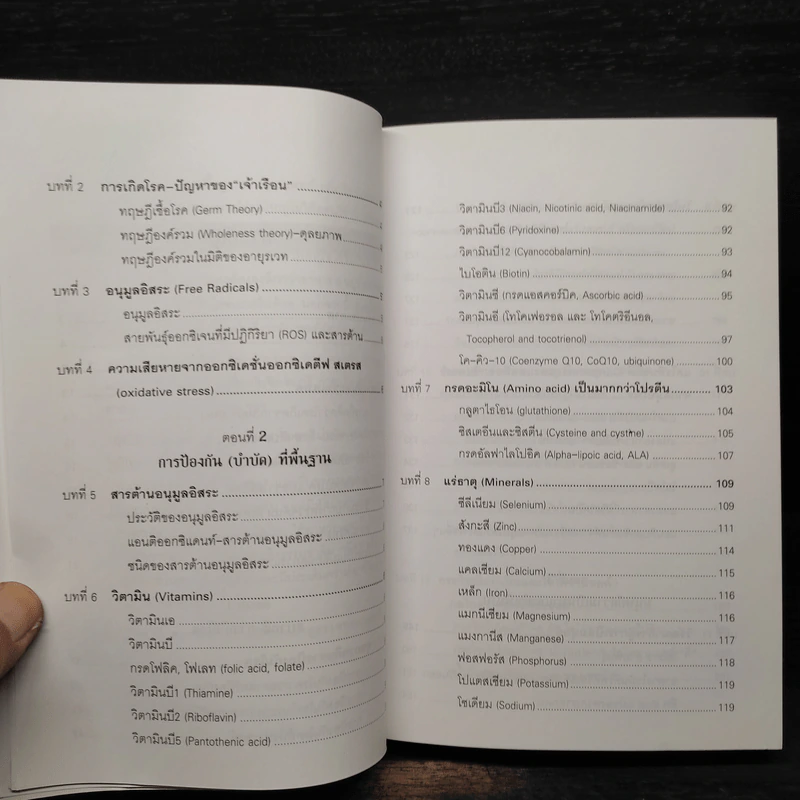 บทที่ 2 การเกิดโรค-ปัญหาของ"เจ้าเรือน"
ทฤษฎีเชื้อโรค (Germ Theory)
ทฤษฎีองค์รวม (Wholeness theory)-ดุลยภาพ
ทฤษฎีองค์รวมในมิติของอายุรเวท
บทที่ 3 อนุมูลอิสระ (Free Radicals)
อนุมูลอิสระ
สายพันธุ์ออกซิเจนที่มีปฏิกิริยา (ROS) และสารต้าน
บทที่ 4 ความเสียหายจากออกซิเดชั่นออกซิเดตีฟ สเตรส
(oxidative stress)
ตอนที่ 2
การป้องกัน (บำบัด) ที่พื้นฐาน
บทที่ 5 สารต้านอนุมูลอิสระ
ประวัติของอนุมูลอิสระ
แอนติออกซิแดนท์-สารต้านอนุมูลอิสระ
ชนิดของสารต้านอนุมูลอิสระ
บทที่ 6 วิตามิน (Vitamins)
วิตามินเอ
วิตามินบี
กรดโฟลิค, โฟเลท (folic acid, folate)
วิตามินบี1 (Thiamine)
วิตามินบี2 (Riboflavin)
วิตามินบี5 (Pantothenic acid)
วิตามินบี3 (Niacin, Nicotinic acid, Niacinamide) 92
วิตามินบี6 (Pyridoxine) 92
วิตามินบี12 (Cyanocobalamin) 93
ไบโอติน (Biotin) 94
วิตามินซี (กรดแอสคอร์บิค, Ascorbic acid) 95
วิตามินอี (โทโคเฟอรอล และ โทโคตริอีนอล,
Tocopherol and tocotrienol) 97
โค-คิว-10 (Coenzyme Q10, CoQ10, ubiquinone) 100
บทที่ 7 กรดอะมิโน (Amino acid) เป็นมากกว่าโปรตีน 103
กลูตาไธโอน (glutathione) 104
ซิสเตอีนและซิสตีน (Cysteine and cystine) 105
กรดอัลฟาไลโปอิค (Alpha-lipoic acid, ALA) 107
บทที่ 8 แร่ธาตุ (Minerals) 109
ซีลีเนียม (Selenium) 109
สังกะสี (Zinc) 111
ทองแดง (Copper) 114
แคลเซียม (Calcium) 115
เหล็ก (Iron) 116
แมกนีเซียม (Magnesium) 116
แมงกานีส (Manganese) 117
ฟอสฟอรัส (Phosphorus) 118
โปแตสเซียม (Potassium) 119
โซเดียม (Sodium) 119